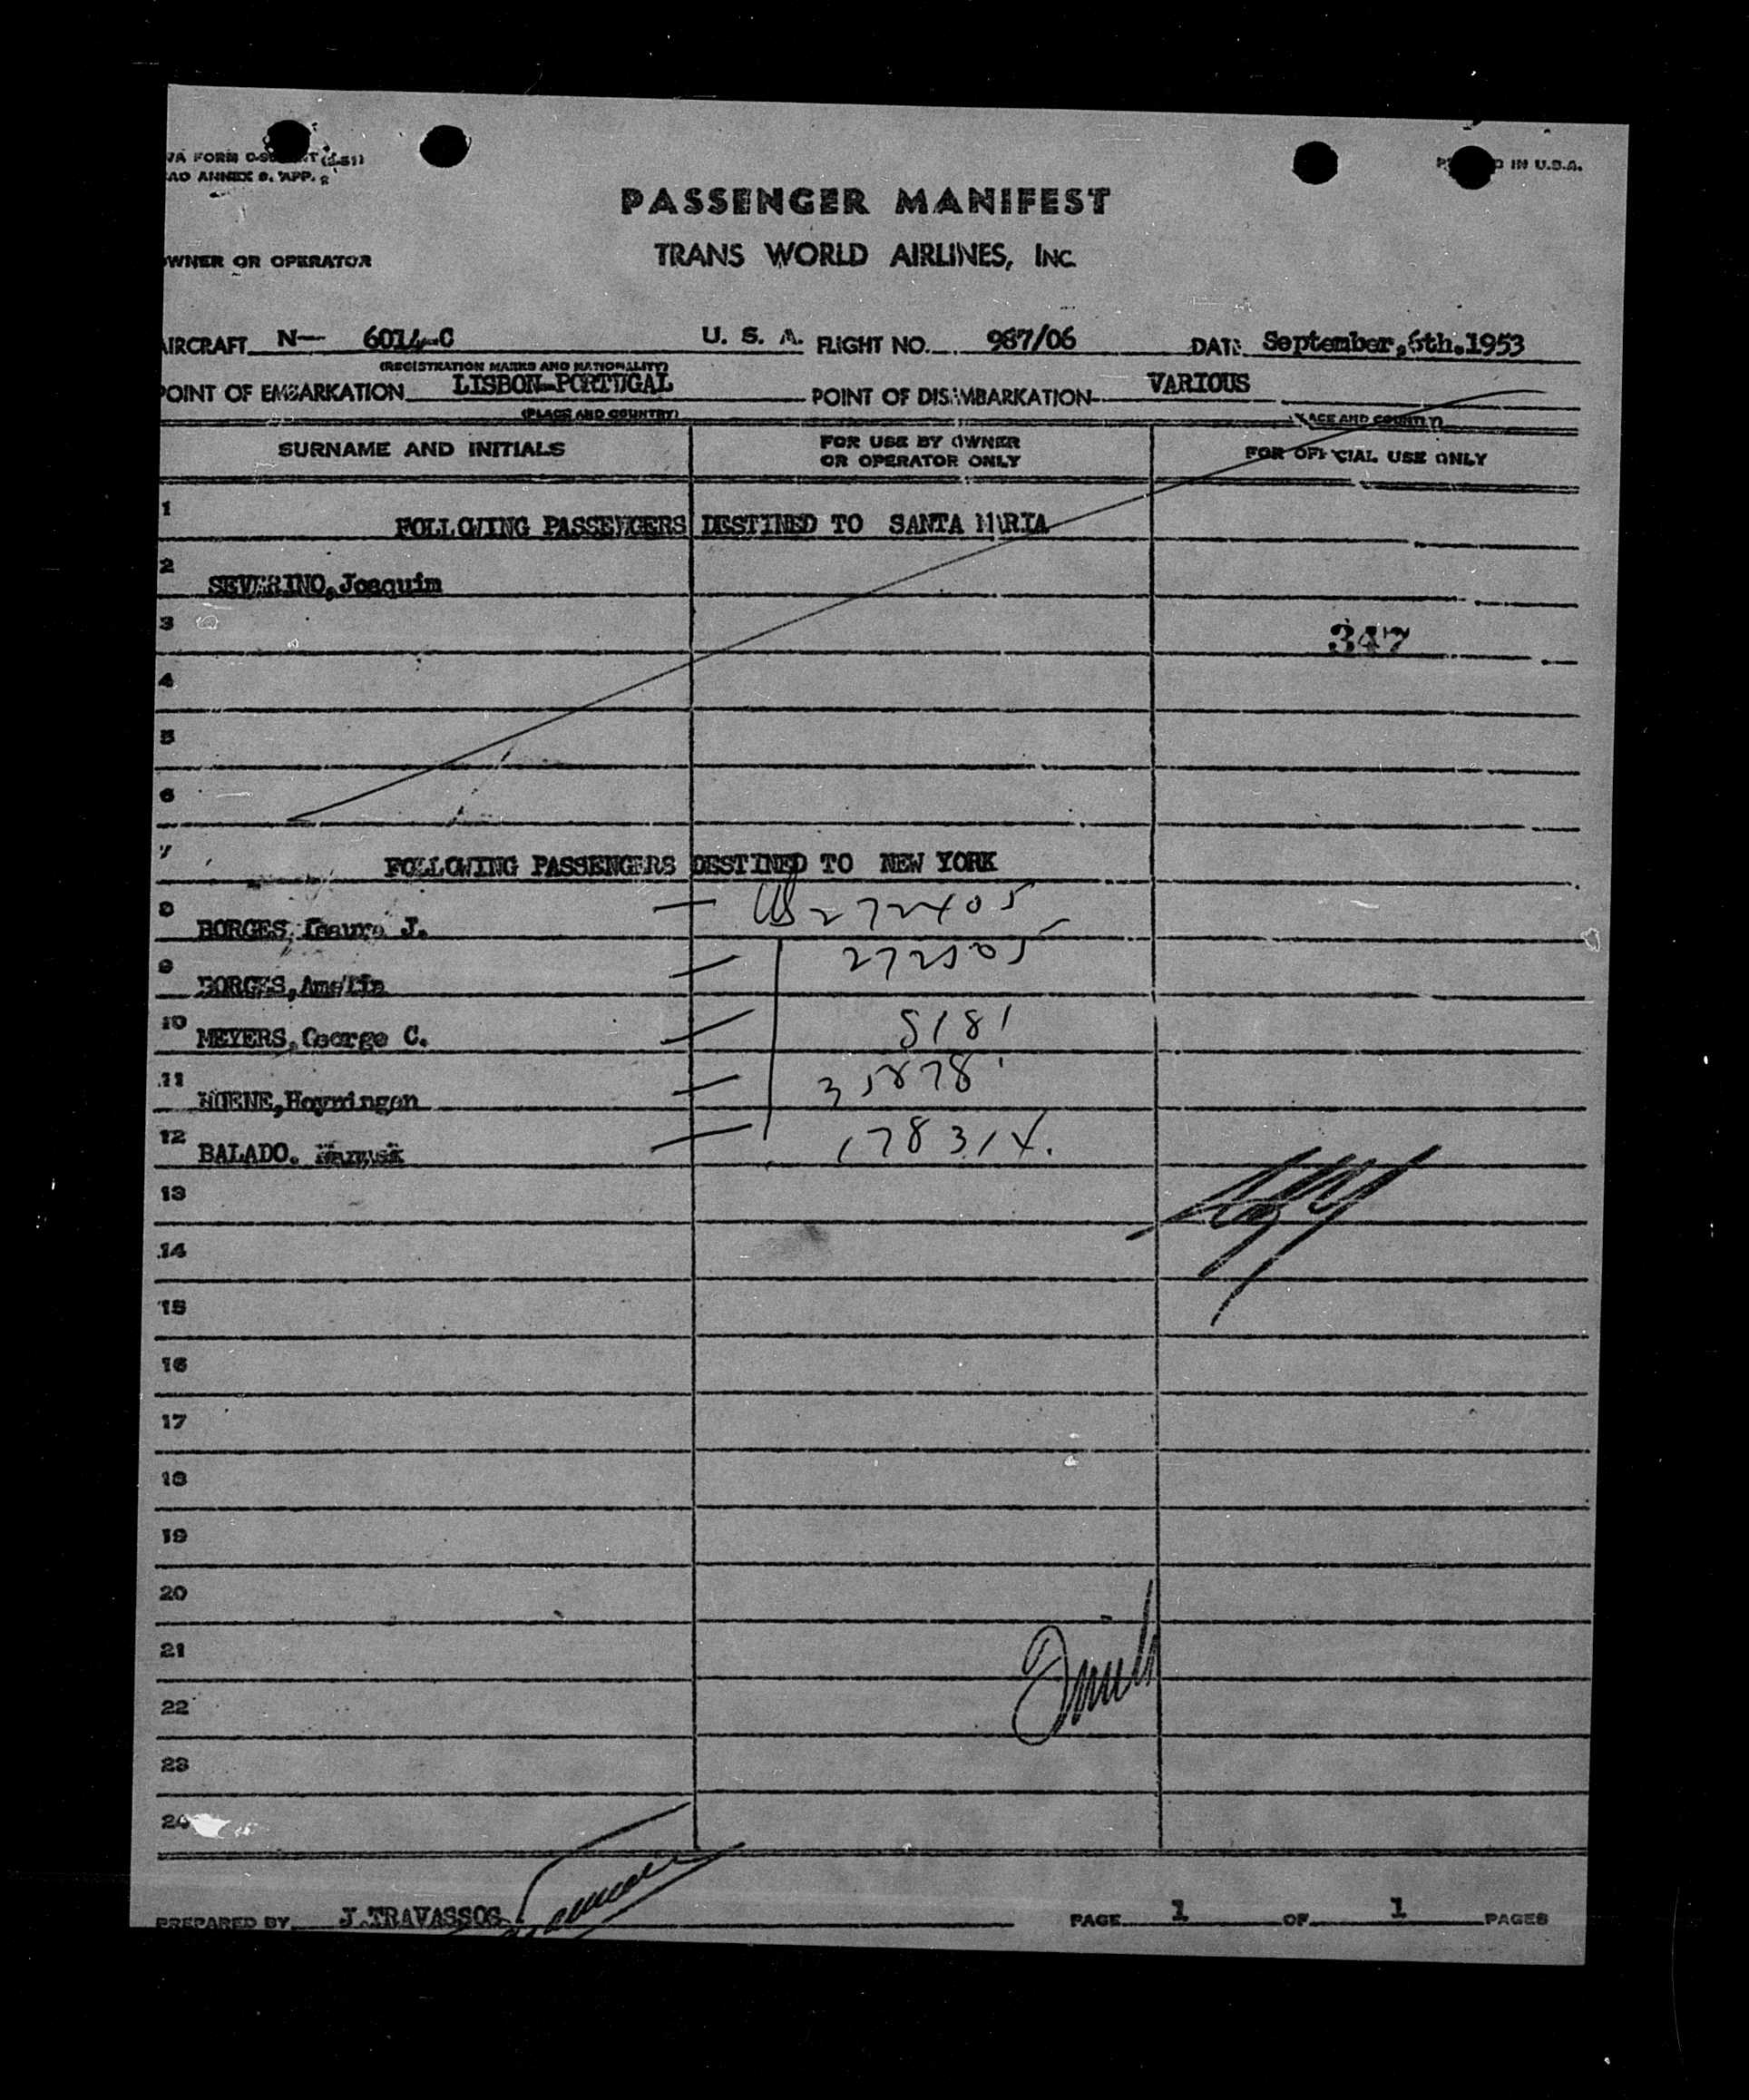 WA FORM (3-51)
CAO ANNEX 9. APP. 2
IN U.S.A.
PASSENGER MANIFEST
OWNER OR OPERATOR TRANS WORLD AIRLINES, INC.
AIRCRAFT N— 6014-C U. S. A. FLIGHT NO. 987/06 DATE September,6th.1953
(REGISTRATION MARKS AND NATIONALITY)
POINT OF EMBARKATION LISBON-PORTUGAL POINT OF DISEMBARKATION VARIOUS
(PLACE AND COUNTRY) (PLACE AND COUNTRY)
SURNAME AND INITIALS FOR USE BY OWNER OR OPERATOR ONLY FOR OFFICIAL USE ONLY
1 FOLLOWING PASSENGERS DESTINED TO SANTA MARIA
2 SEVERINO,Joaquim
3 347
4
5
6
7 FOLLOWING PASSENGERS DESTINED TO NEW YORK
8 BORGES, J. 272405
9 BORGES, 272505
10 MEYERS,George C. 5181
11 HOENE,Hoyningen 35878
12 BALADO. 178314.
13
14
15
16
17
18
19
20
21
22
23
24
PREPARED BY J.TRAVASSOS PAGE 1 OF 1 PAGES